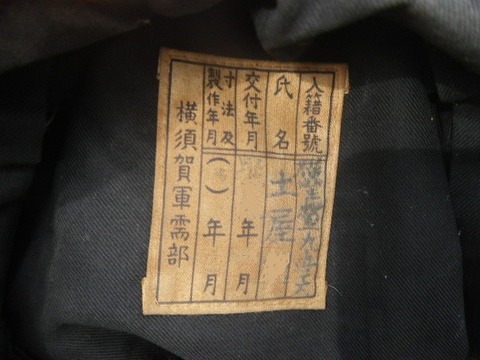 入籍番號
氏名 土屋
交付年月 年 月
寸法及製作年月 ( ) 年 月
横須賀軍需部